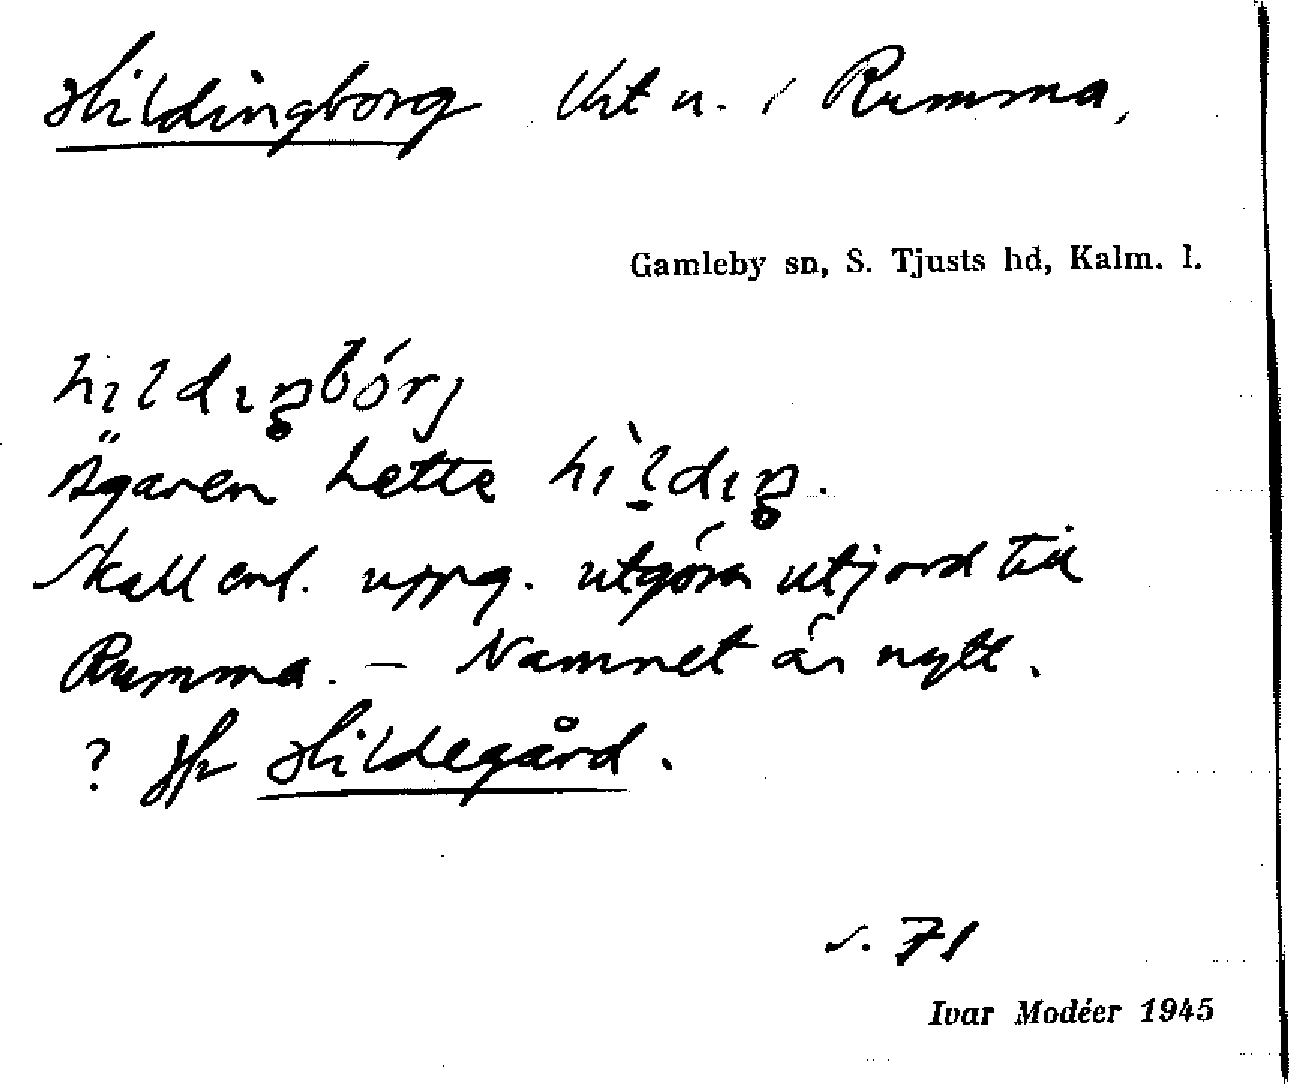 Hildingborg Utt u. i Rumma,
Gamleby sn, S. Tjusts hd, Kalm. l.
hıldıŋbórj
Ägaren hette hìldıŋ.
Skall enl. uppg. utgöra utjord till
Rumma. – Namnet är nytt.
? Jfr Hildegård.
s. 71
Ivar Modéer 1945